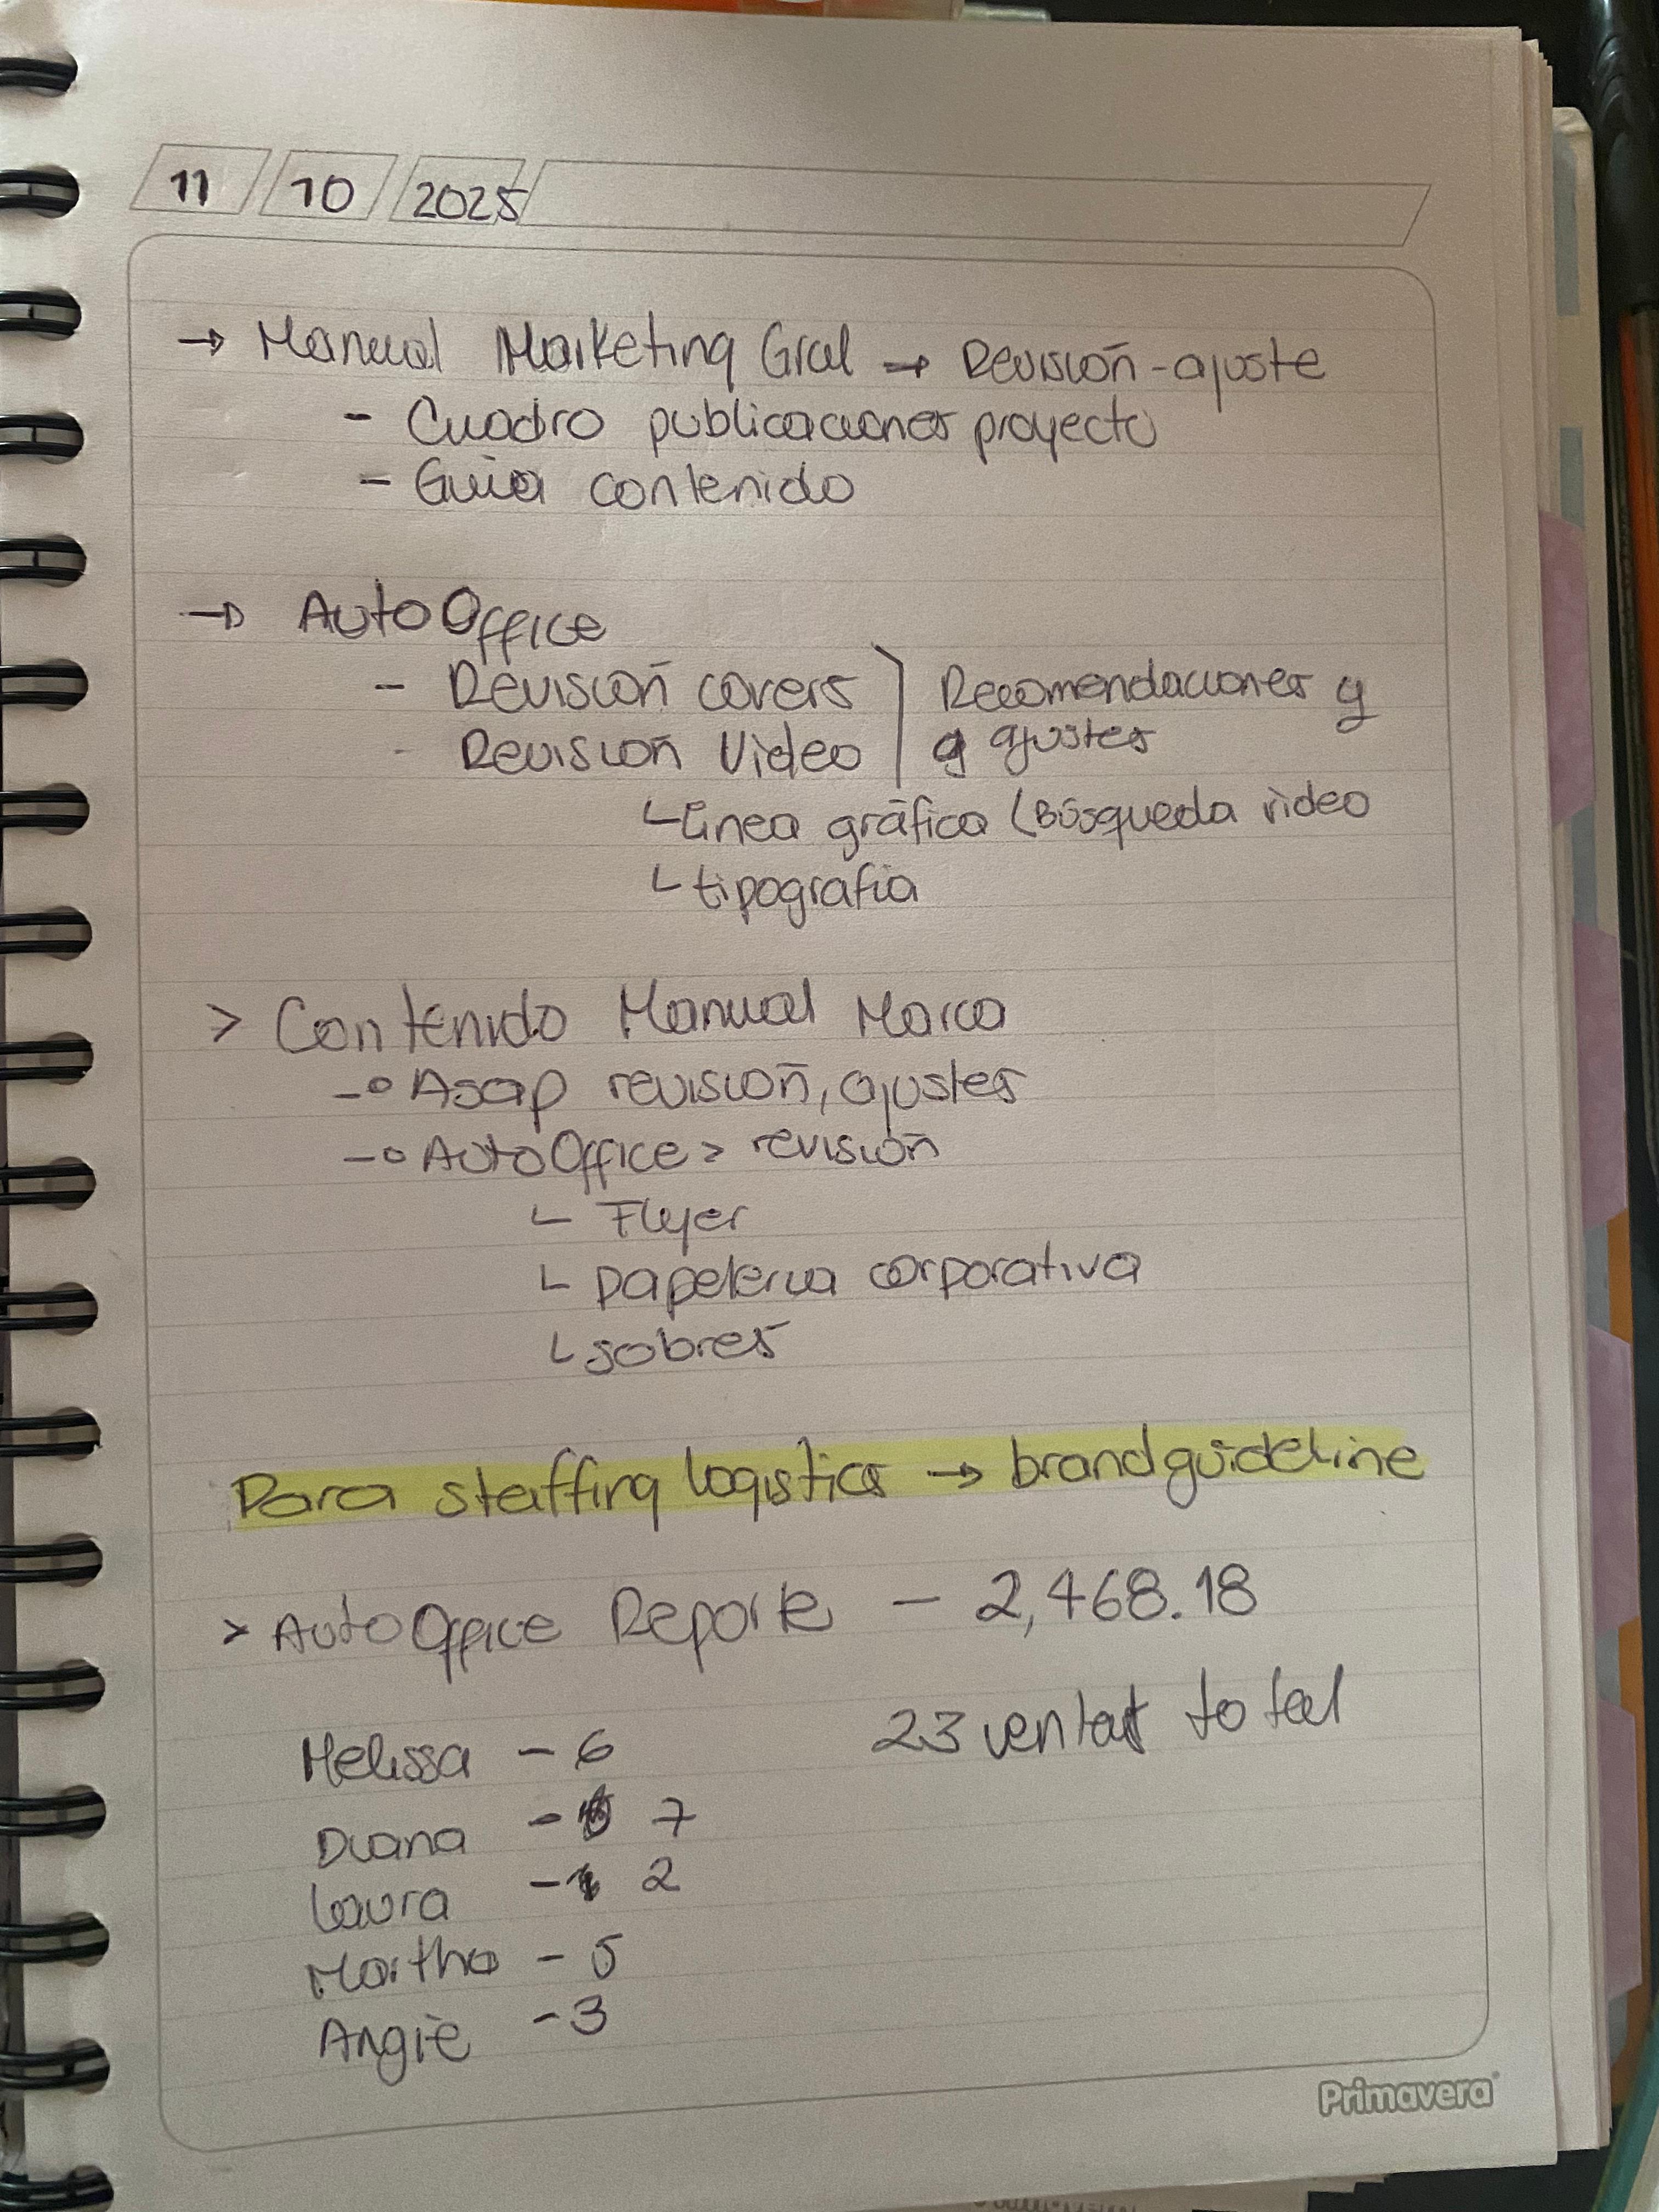 11 10 2025
→ Manual Marketing Gral → Revisión - ajuste
- Cuadro publicaciones proyecto
- Guía contenido
→ AutoOffice
- Revisión covers } Recomendaciones y
- Revisión Video } y ajustes
└ línea gráfica (Búsqueda video
└ tipografía
> Contenido Manual Marca
-° Asap revisión, ajustes
-° AutoOffice > revisión
└ Flyer
└ papelería corporativa
└ sobres
Para staffing logistics → brandguideline
> AutoOffice Reporte - 2,468.18
23 ventas total
Melissa - 6
Diana - 7
Laura - 2
Martha - 5
Angie - 3
Primavera